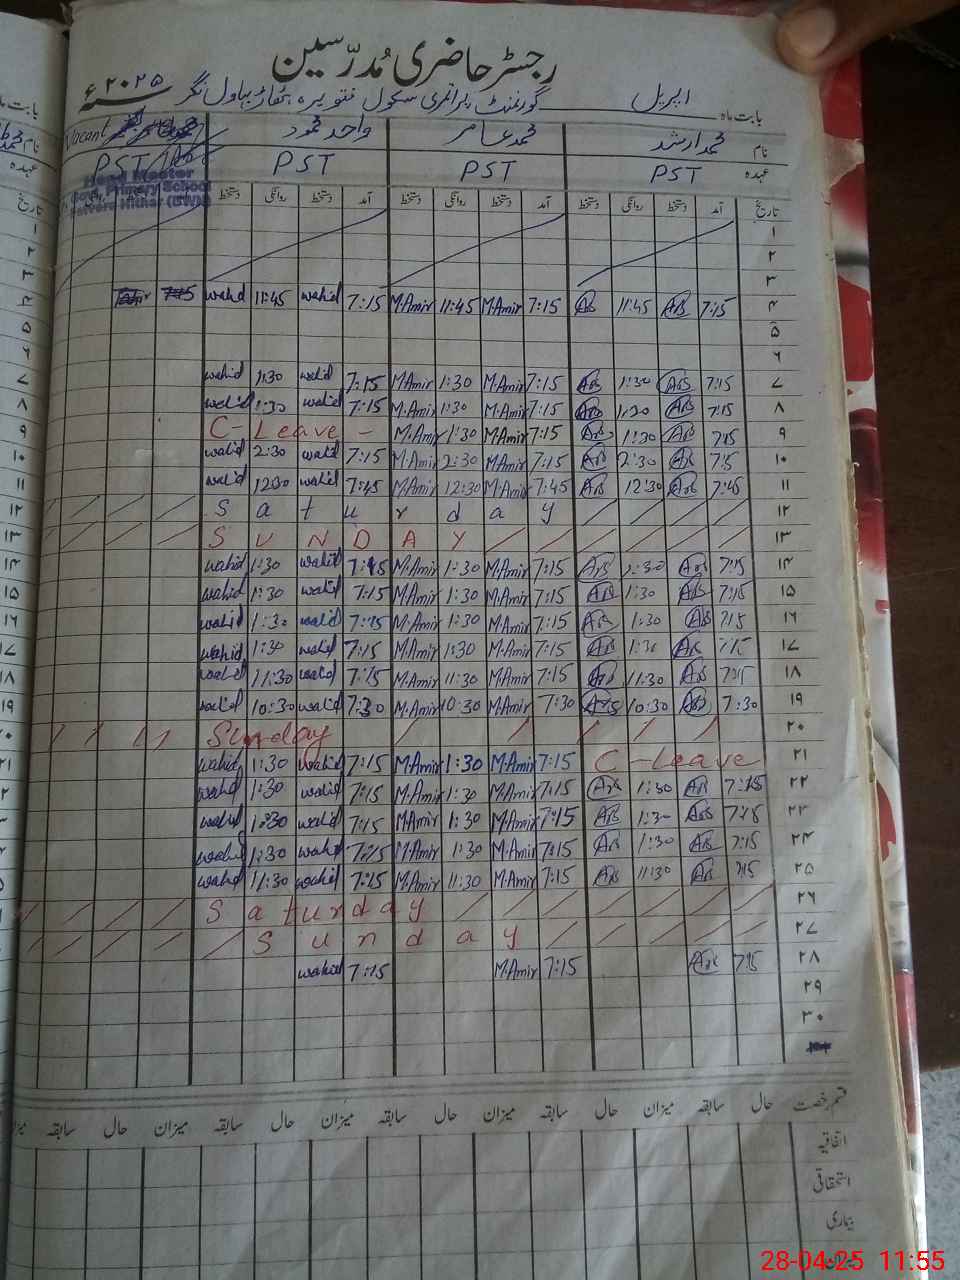 رجسٹر حاضری مُدرّسین
بابت ماہ اپریل گورنمنٹ پرائمری سکول بہاول نگر سنہ ۲۰۲۵ء
نام محمد ارشد محمد عامر واحد محمود Vacant
عہدہ PST PST PST PST
Head Master
Govt. Primary School
تاریخ آمد دستخط روانگی دستخط آمد دستخط روانگی دستخط آمد دستخط روانگی دستخط
۱
۲
۳
۴ 7:15 AB 11:45 AB 7:15 M.Amir 11:45 M.Amir 7:15 wahid 11:45 wahid
۵
۶
۷ 7:15 AB 1:30 AB 7:15 M.Amir 1:30 M.Amir 7:15 wahid 1:30 wahid
۸ 7:15 AB 1:30 AB 7:15 M.Amir 1:30 M.Amir 7:15 wahid 1:30 wahid
۹ 7:15 AB 1:30 AB 7:15 M.Amir 1:30 M.Amir C-Leave-
۱۰ 7:15 AB 2:30 AB 7:15 M.Amir 2:30 M.Amir 7:15 wahid 2:30 wahid
۱۱ 7:45 AB 12:30 AB 7:45 M.Amir 12:30 M.Amir 7:45 wahid 1230 wahid
۱۲ Saturday
۱۳ SUNDAY
۱۴ 7:15 AB 1:30 AB 7:15 M.Amir 1:30 M.Amir 7:15 wahid 1:30 wahid
۱۵ 7:15 AB 1:30 AB 7:15 M.Amir 1:30 M.Amir 7:15 wahid 1:30 wahid
۱۶ 7:15 AB 1:30 AB 7:15 M.Amir 1:30 M.Amir 7:15 wahid 1:30 wahid
۱۷ 7:15 AB 1:30 AB 7:15 M.Amir 1:30 M.Amir 7:15 wahid 1:30 wahid
۱۸ 7:15 AB 11:30 AB 7:15 M.Amir 11:30 M.Amir 7:15 wahid 11:30 wahid
۱۹ 7:30 AB 10:30 AB 7:30 M.Amir 10:30 M.Amir 7:30 wahid 10:30 wahid
۲۰ Sunday
۲۱ C-Leave 7:15 M.Amir 1:30 M.Amir 7:15 wahid 1:30 wahid
۲۲ 7:15 AB 1:30 AB 7:15 M.Amir 1:30 M.Amir 7:15 wahid 1:30 wahid
۲۳ 7:15 AB 1:30 AB 7:15 M.Amir 1:30 M.Amir 7:15 wahid 1:30 wahid
۲۴ 7:15 AB 1:30 AB 7:15 M.Amir 1:30 M.Amir 7:15 wahid 1:30 wahid
۲۵ 7:15 AB 11:30 AB 7:15 M.Amir 11:30 M.Amir 7:15 wahid 11:30 wahid
۲۶ Saturday
۲۷ Sunday
۲۸ 7:15 AB 7:15 M.Amir 7:15 wahid
۲۹
۳۰
قسم رخصت حال سابقہ میزان حال سابقہ میزان حال سابقہ میزان حال سابقہ
اتفاقیہ
استحقاقی
بیماری
28-04-25 11:55